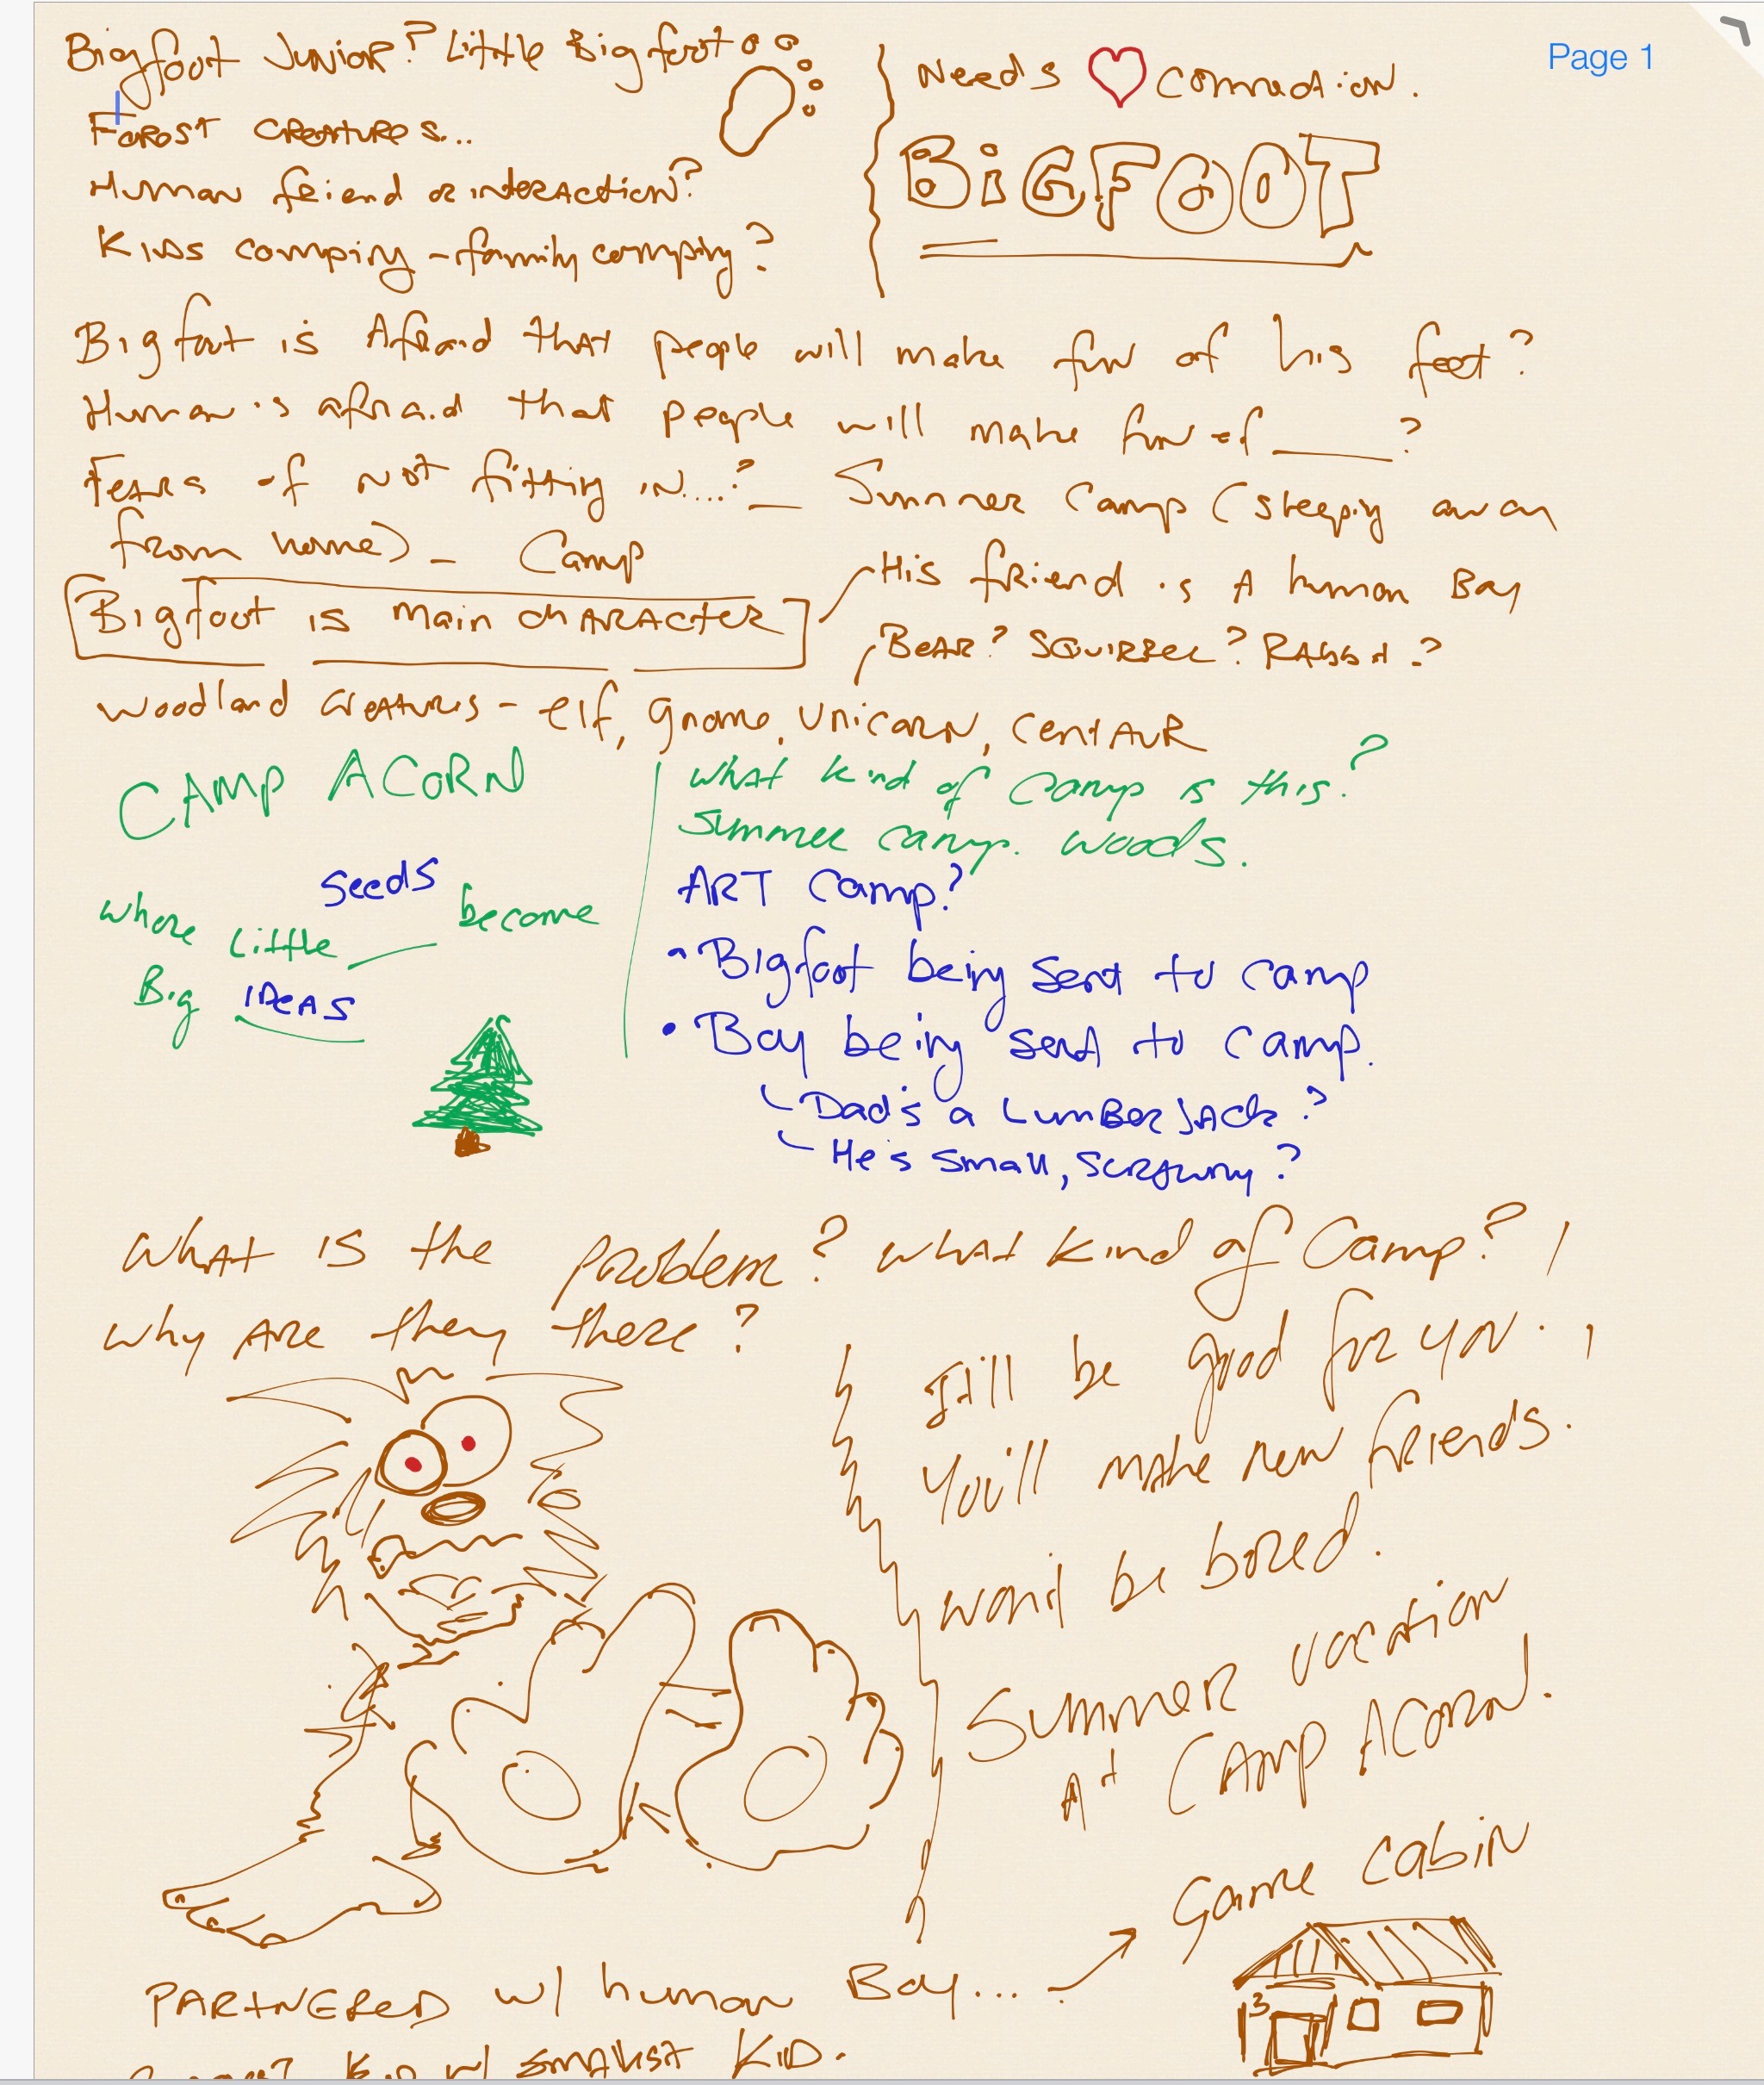 Page 1
Bigfoot Junior? Little Bigfoot
Forest Creatures...
Human friend or interaction?
Kids camping - family camping?
Needs connection.
BIGFOOT
Bigfoot is Afraid that people will make fun of his feet?
Human is afraid that people will make fun of ______?
Fears of not fitting in...? _ Summer Camp (sleeping away
from home) - Camp
Bigfoot is main character
His friend is A human Boy
Bear? Squirrel? Rabbit?
Woodland creatures - elf, gnome, unicorn, centaur
CAMP ACORN
where little seeds become
Big IDEAS
What kind of camp is this?
Summer camp. Woods.
ART Camp?
• Bigfoot being sent to camp
• Boy being sent to camp.
Dad's a Lumberjack?
He's small, scrawny?
What is the problem? What kind of Camp?
Why are they there?
It'll be good for you.
You'll make new friends.
Won't be bored.
Summer vacation
At Camp Acorn.
Game Cabin
3
PARTNERED w/ human Boy...
Kid w/ smallest KID.